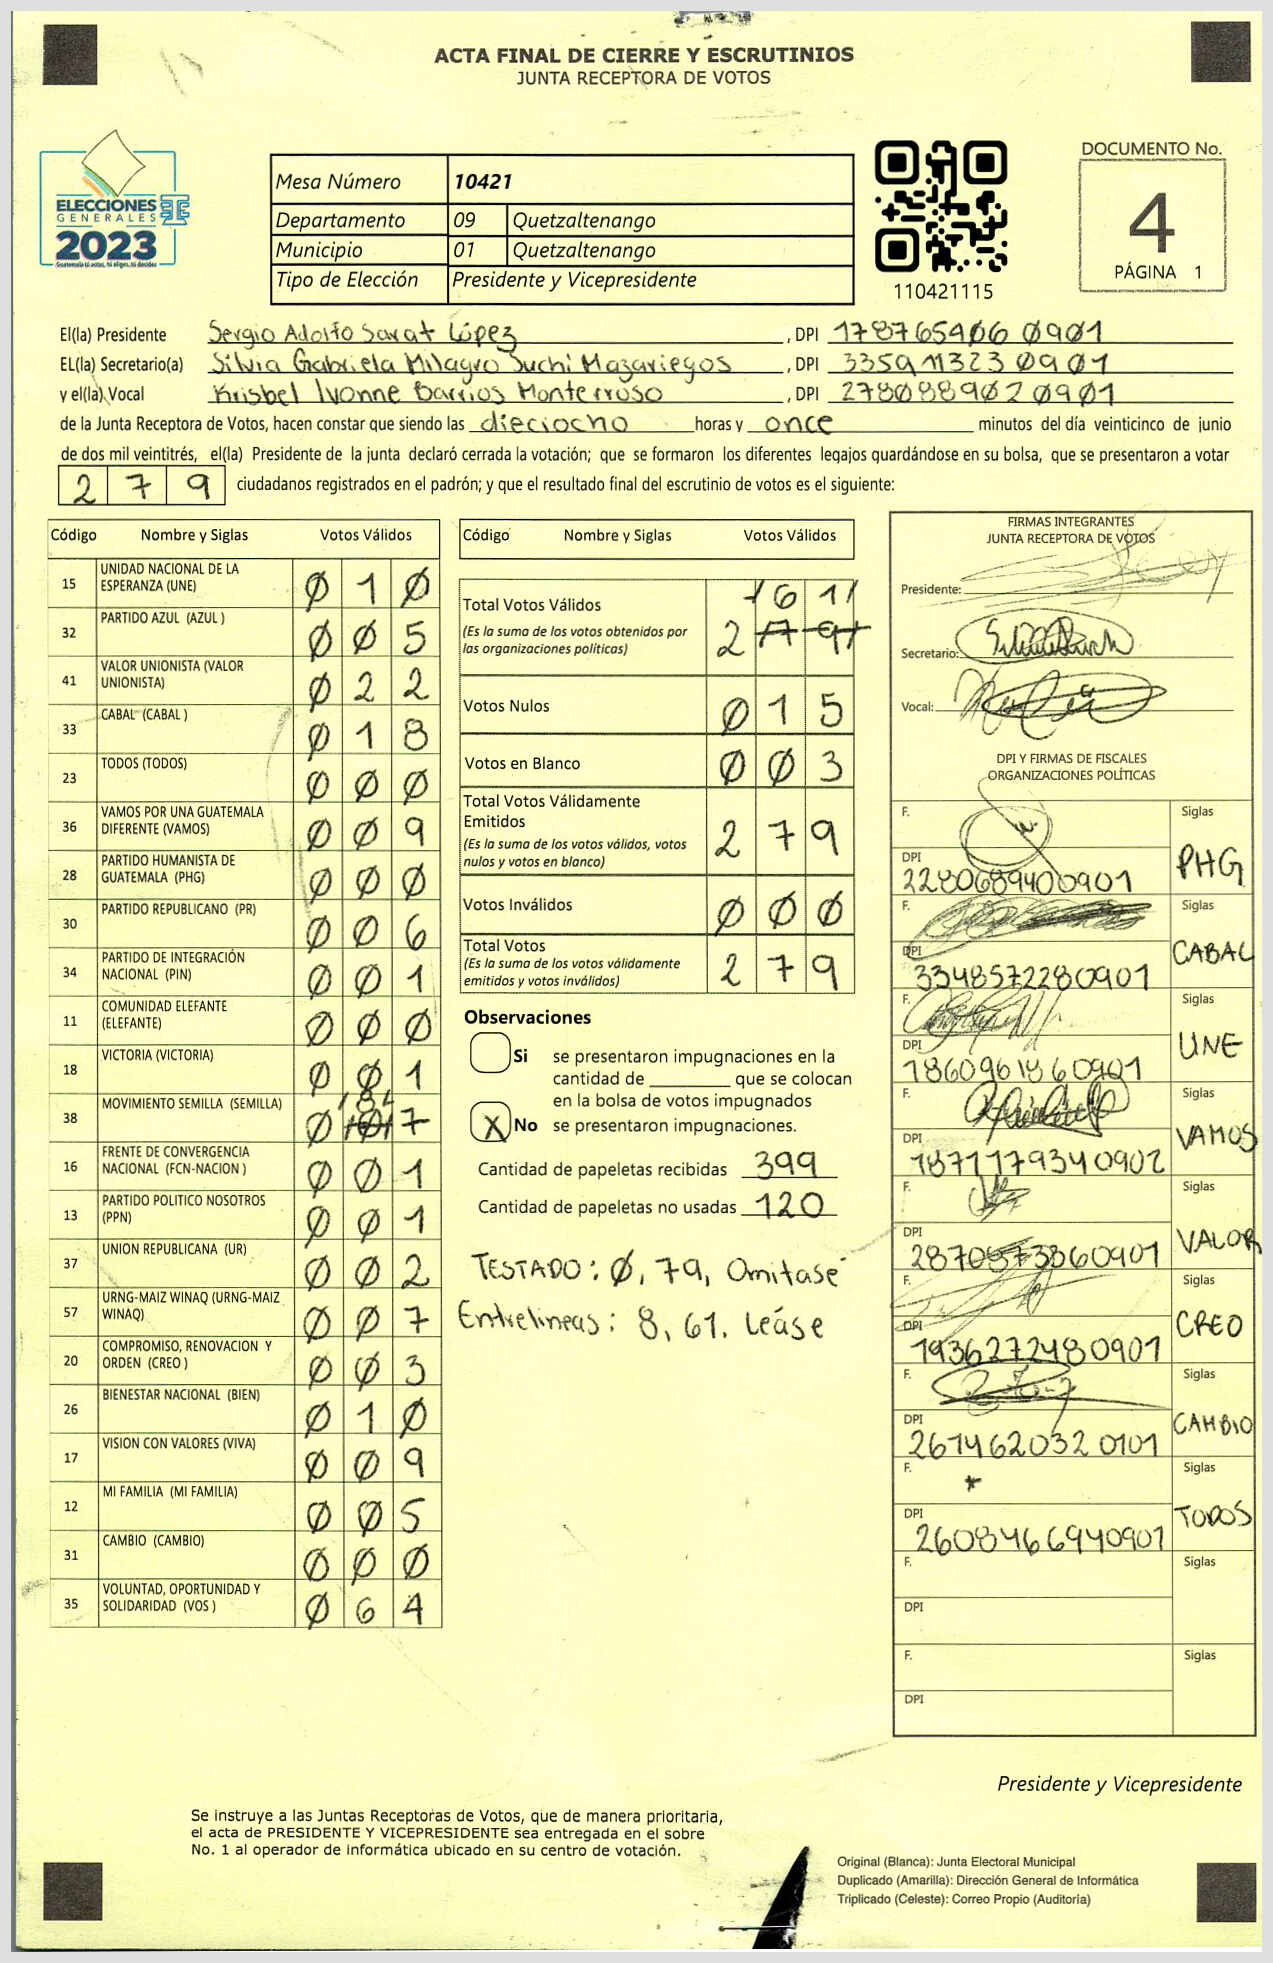 ACTA FINAL DE CIERRE Y ESCRUTINIOS
JUNTA RECEPTORA DE VOTOS
ELECCIONES
GENERALES
2023
Mesa Número 10421
Departamento 09 Quetzaltenango
Municipio 01 Quetzaltenango
Tipo de Elección Presidente y Vicepresidente
110421115
DOCUMENTO No.
4
PÁGINA 1
El(la) Presidente Sergio Adolfo Sarat López, DPI 178765406 0901
EL(la) Secretario(a) Silvia Gabriela Milagro Suchi Mazariegos, DPI 335911323 0901
y el(la) Vocal Krisbel Ivonne Barrios Monterroso, DPI 278088902 0901
de la Junta Receptora de Votos, hacen constar que siendo las dieciocho horas y once minutos del día veinticinco de junio
de dos mil veintitrés, el(la) Presidente de la junta declaró cerrada la votación; que se formaron los diferentes legajos guardándose en su bolsa, que se presentaron a votar
279 ciudadanos registrados en el padrón; y que el resultado final del escrutinio de votos es el siguiente:
Código Nombre y Siglas Votos Válidos
15 UNIDAD NACIONAL DE LA ESPERANZA (UNE) 010
32 PARTIDO AZUL (AZUL ) 005
41 VALOR UNIONISTA (VALOR UNIONISTA) 022
33 CABAL (CABAL ) 018
23 TODOS (TODOS) 000
36 VAMOS POR UNA GUATEMALA DIFERENTE (VAMOS) 009
28 PARTIDO HUMANISTA DE GUATEMALA (PHG) 000
30 PARTIDO REPUBLICANO (PR) 006
34 PARTIDO DE INTEGRACIÓN NACIONAL (PIN) 001
11 COMUNIDAD ELEFANTE (ELEFANTE) 000
18 VICTORIA (VICTORIA) 001
38 MOVIMIENTO SEMILLA (SEMILLA) 087
16 FRENTE DE CONVERGENCIA NACIONAL (FCN-NACION ) 001
13 PARTIDO POLITICO NOSOTROS (PPN) 001
37 UNION REPUBLICANA (UR) 002
57 URNG-MAIZ WINAQ (URNG-MAIZ WINAQ) 007
20 COMPROMISO, RENOVACION Y ORDEN (CREO ) 003
26 BIENESTAR NACIONAL (BIEN) 010
17 VISION CON VALORES (VIVA) 009
12 MI FAMILIA (MI FAMILIA) 005
31 CAMBIO (CAMBIO) 000
35 VOLUNTAD, OPORTUNIDAD Y SOLIDARIDAD (VOS ) 064
Código Nombre y Siglas Votos Válidos
Total Votos Válidos 261
(Es la suma de los votos obtenidos por
las organizaciones políticas)
Votos Nulos 015
Votos en Blanco 003
Total Votos Válidamente
Emitidos 279
(Es la suma de los votos válidos, votos
nulos y votos en blanco)
Votos Inválidos 000
Total Votos 279
(Es la suma de los votos válidamente
emitidos y votos inválidos)
Observaciones
Si se presentaron impugnaciones en la
cantidad de ________ que se colocan
en la bolsa de votos impugnados
X No se presentaron impugnaciones.
Cantidad de papeletas recibidas 399
Cantidad de papeletas no usadas 120
TESTADO: 0, 79, Omitase
Entrelineas: 8, 61. Léase
FIRMAS INTEGRANTES
JUNTA RECEPTORA DE VOTOS
Presidente:
Secretario:
Vocal:
DPI Y FIRMAS DE FISCALES
ORGANIZACIONES POLÍTICAS
F. Siglas
DPI 2280689400901 PHG
F. Siglas
DPI 3348572280901 CABAL
F. Siglas
DPI 1860961860901 UNE
F. Siglas
DPI 1871179340902 VAMOS
F. Siglas
DPI VALOR
F. Siglas
DPI 1936272480901 CREO
F. Siglas
DPI 2614620320101 CAMBIO
F. Siglas
DPI 2608466940901 TODOS
F. Siglas
DPI
F. Siglas
DPI
Presidente y Vicepresidente
Se instruye a las Juntas Receptoras de Votos, que de manera prioritaria,
el acta de PRESIDENTE Y VICEPRESIDENTE sea entregada en el sobre
No. 1 al operador de informática ubicado en su centro de votación.
Original (Blanca): Junta Electoral Municipal
Duplicado (Amarilla): Dirección General de Informática
Triplicado (Celeste): Correo Propio (Auditoría)